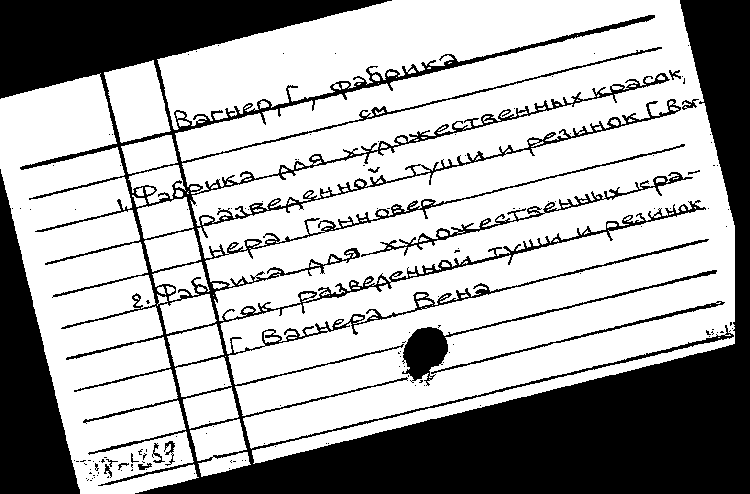 Вагнер, Г., Фабрика
см
1. Фабрика для художественных красок,
разведенной туши и резинок Г. Ваг-
нера. Ганновер.
2. Фабрика для художественных кра-
сок, разведенной туши и резинок
Г. Вагнера. Вена
38-1269